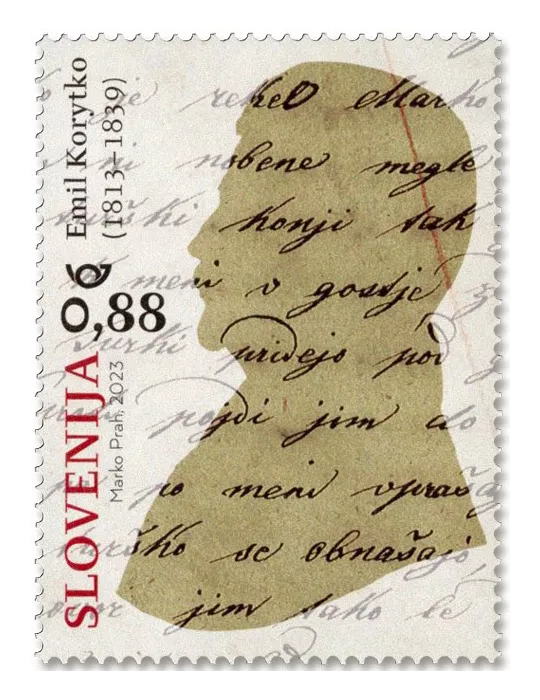 Emil Korytko
(1813–1839)
0,88
SLOVENIJA
Marko Prah, 2023
rekel Marko
nobene megle
konji tak
meni v gostje
turki pridejo pod
pojdi jim do
po meni vpraš
turško se obnašajo,
jim tako le